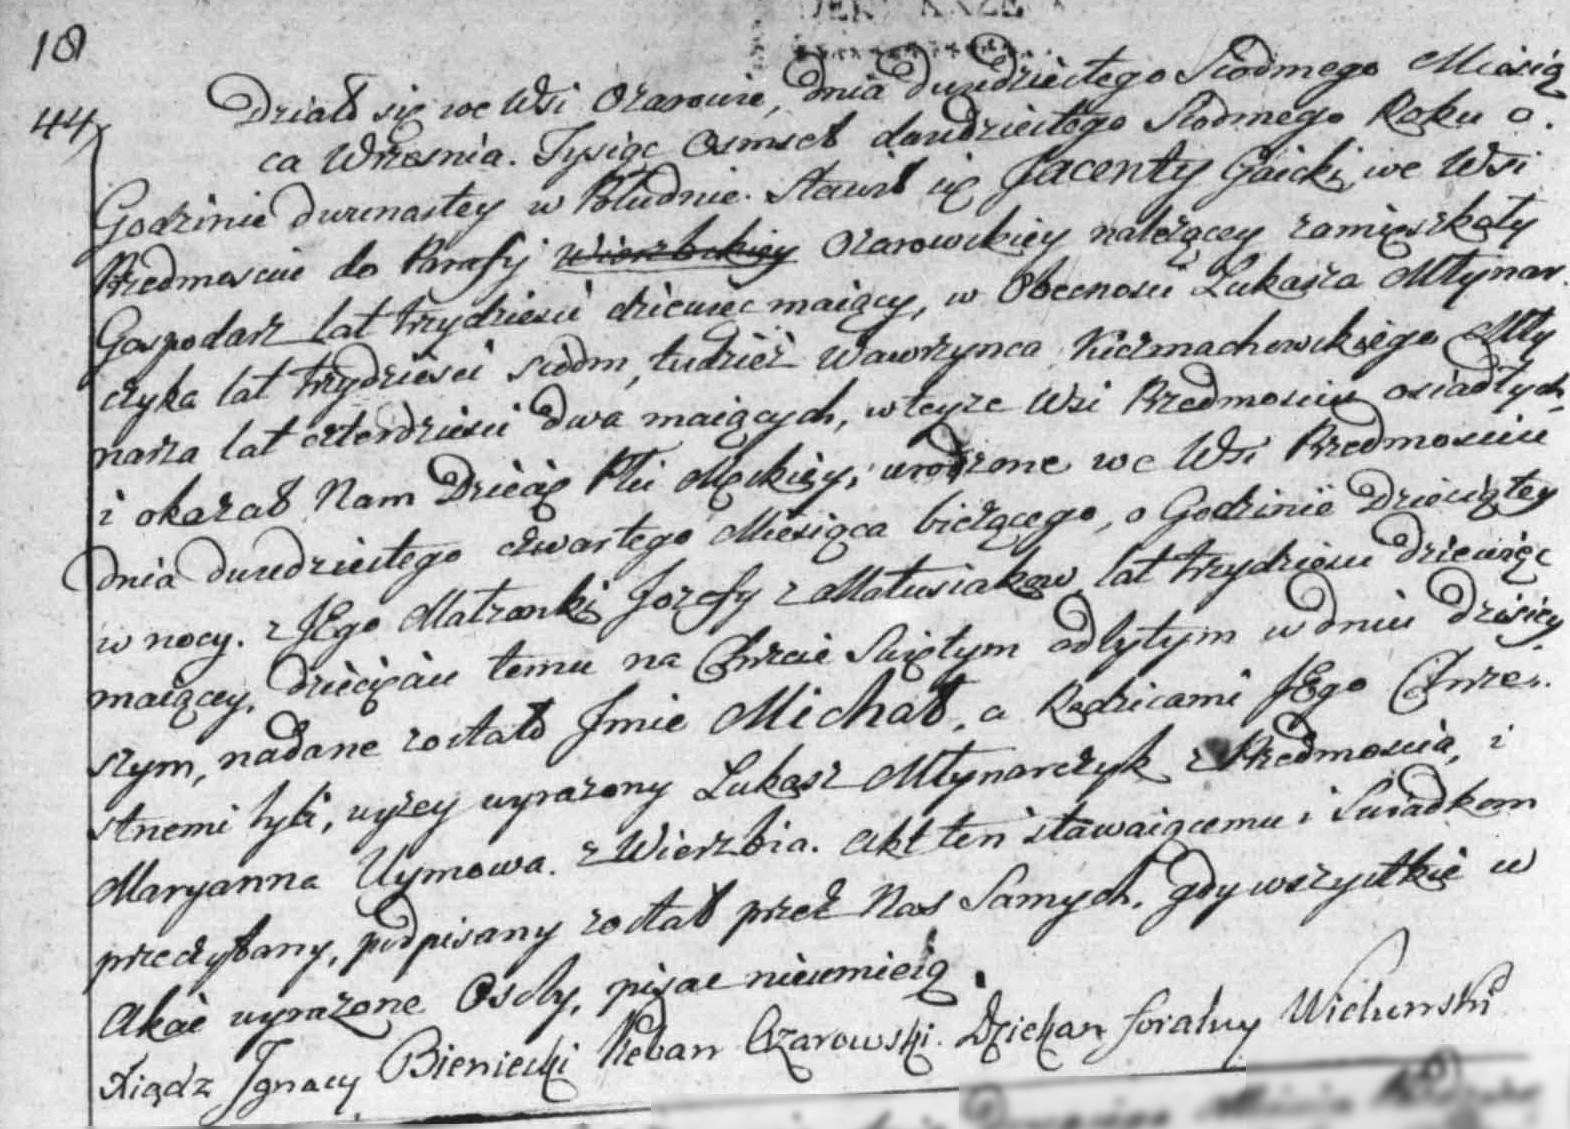 18
44
Działo się we Wsi Ożarowie, dnia dwudziestego Siodmego Miesią
ca Września. Tysiąc Osmset dwudziestego Siodmego Roku o
Godzinie dwunastey w Południe. Stawił się Jacenty Gaicki we Wsi
Przedmoscie do Parafij Wierzbckiey Ożarowskiey należącey zamieszkały
Gospodarz lat trzydziesci dziewięc maiący, w Obecnosci Łukasza Młynar
czyka lat trzydziesci siedm, tudzież Wawrzynca Kiczmachowskiego Mły
narza lat czterdziesci dwa maiących, w teyże Wsi Przedmosciu osiadłych,
i okazał Nam Dziecię Płci Męskiey, urodzone we Wsi Przedmosciu
dnia dwudziestego czwartego Miesiąca bieżącego, o Godzinie Dziesiątey
w nocy. z JEgo Małżonki Jozefy z Matusiakow, lat trzydziesci dziewięc
maiącey, dziecięciu temu na Chrzcie Swiętym odbytym w dniu dzisiey
szym, nadane zostało Jmie Michał, a Rodzicami JEgo Chrze.
stnemi byli, wyżey wyrażony Łukasz Młynarczyk z Przedmoscia, i
Maryanna Uymowa. z Wierzbia. Akt ten stawaiącemu i Swiadkom
przeczytany, podpisany został przez Nas Samych, gdy wszystkie w
Akcie wyrażone Osoby, pisac nieumieią.
Xiądz Jgnacy Bieniecki Pleban Ożarowski. Dziekan foralny Wieluński